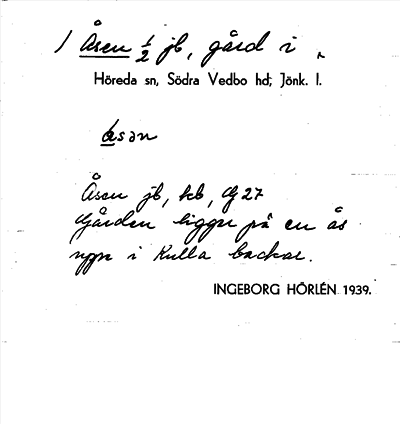 / Åsen ½ jb, gård i
Höreda sn, Södra Vedbo hd; Jönk. l.
åsən
Åsen jb, kb, G 27
Gården ligger på en ås
uppe i Kulla backar.
INGEBORG HÖRLÉN 1939.